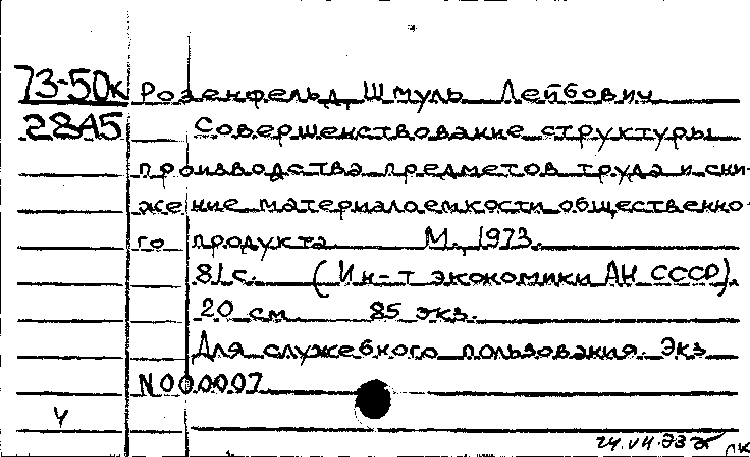 73-50к Розенфельд, Шмуль Лейбович
2845 Совершенствование структуры
производства предметов труда и сни-
жение материалоемкости общественно-
го продукта. М., 1973.
81 с. (Ин-т экономики АН СССР).
20 см. 85 экз.
Для служебного пользования. Экз
N000007.
Ч
24.VII.73